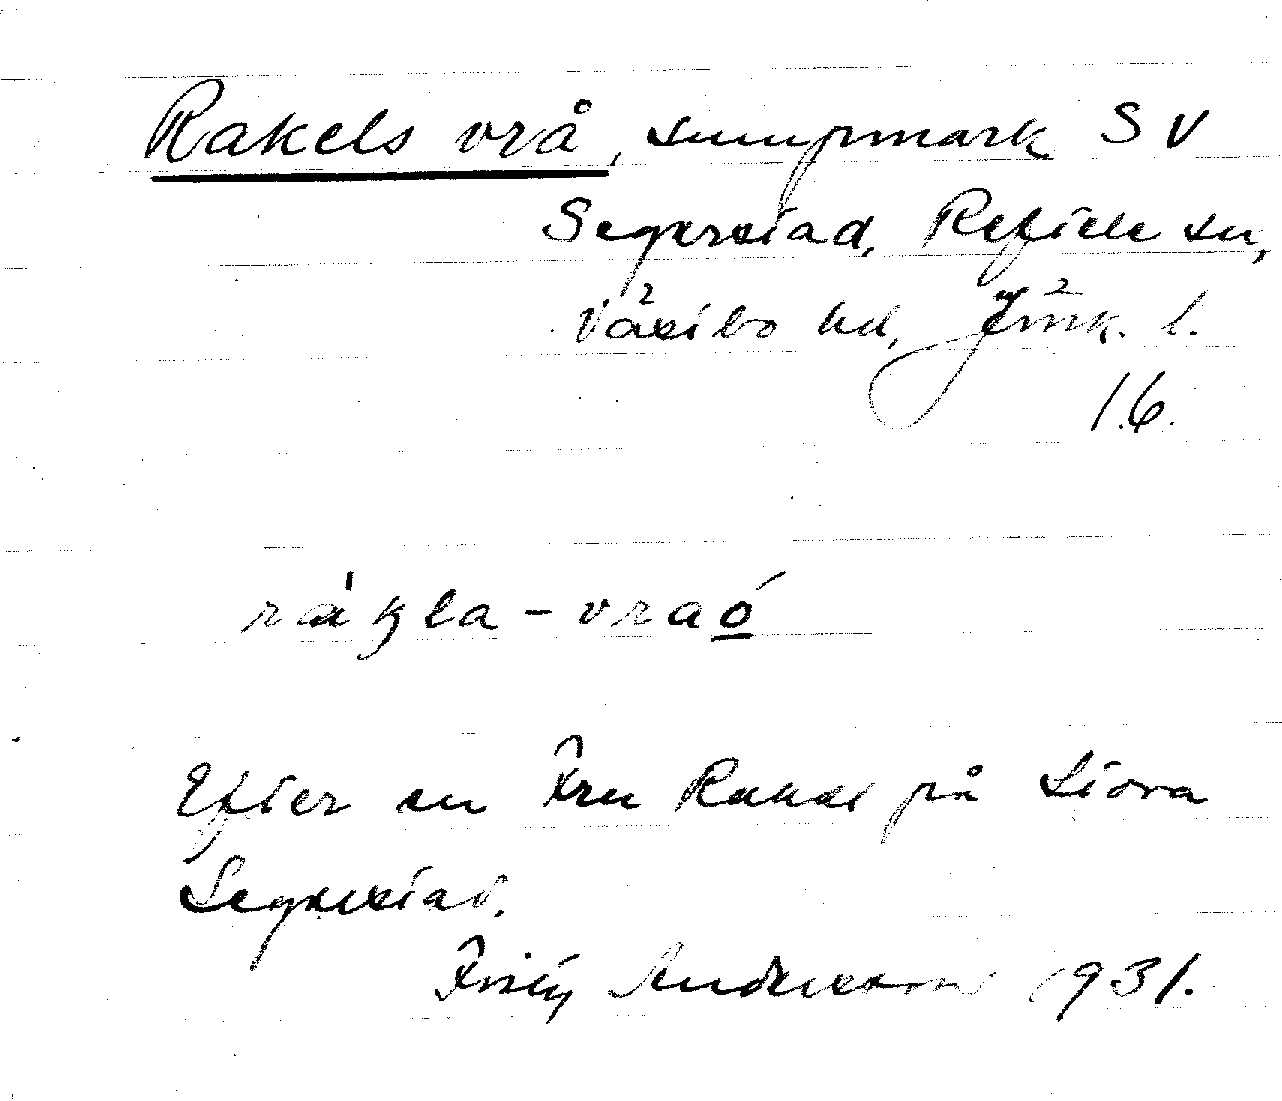 Rakels vrå, sumpmark SV
Segerstad, Reftele sn,
Västbo hd, Jönk. l.
16.
rákla-vraó
Efter en Fru Rakel på Stora
Segerstad.
Fritz Andersson 1931.